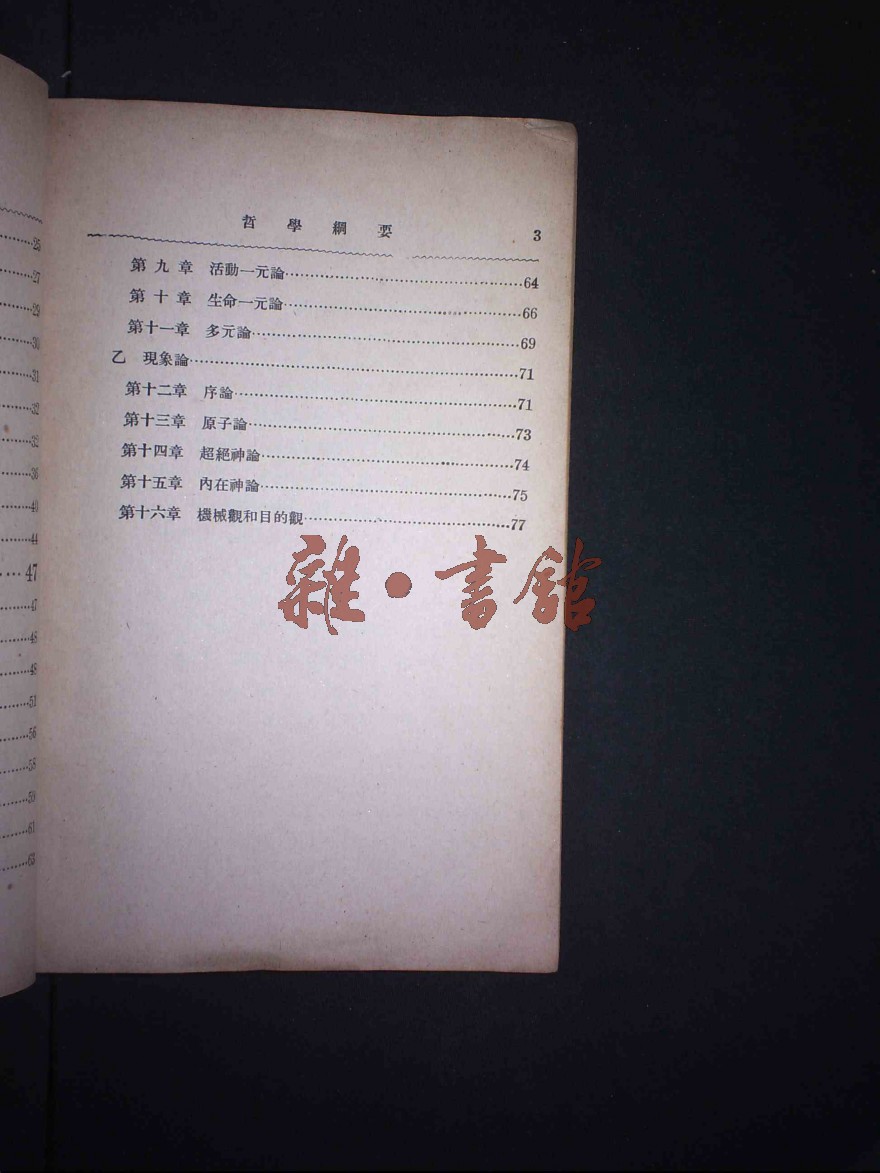 25
27
29
30
31
32
32
36
40
44
47
47
48
48
51
56
58
59
61
63
哲學綱要 3
第九章 活動一元論……64
第十章 生命一元論……66
第十一章 多元論……69
乙 現象論……71
第十二章 序論……71
第十三章 原子論……73
第十四章 超絕神論……74
第十五章 內在神論……75
第十六章 機械觀和目的觀……77
雜·書館